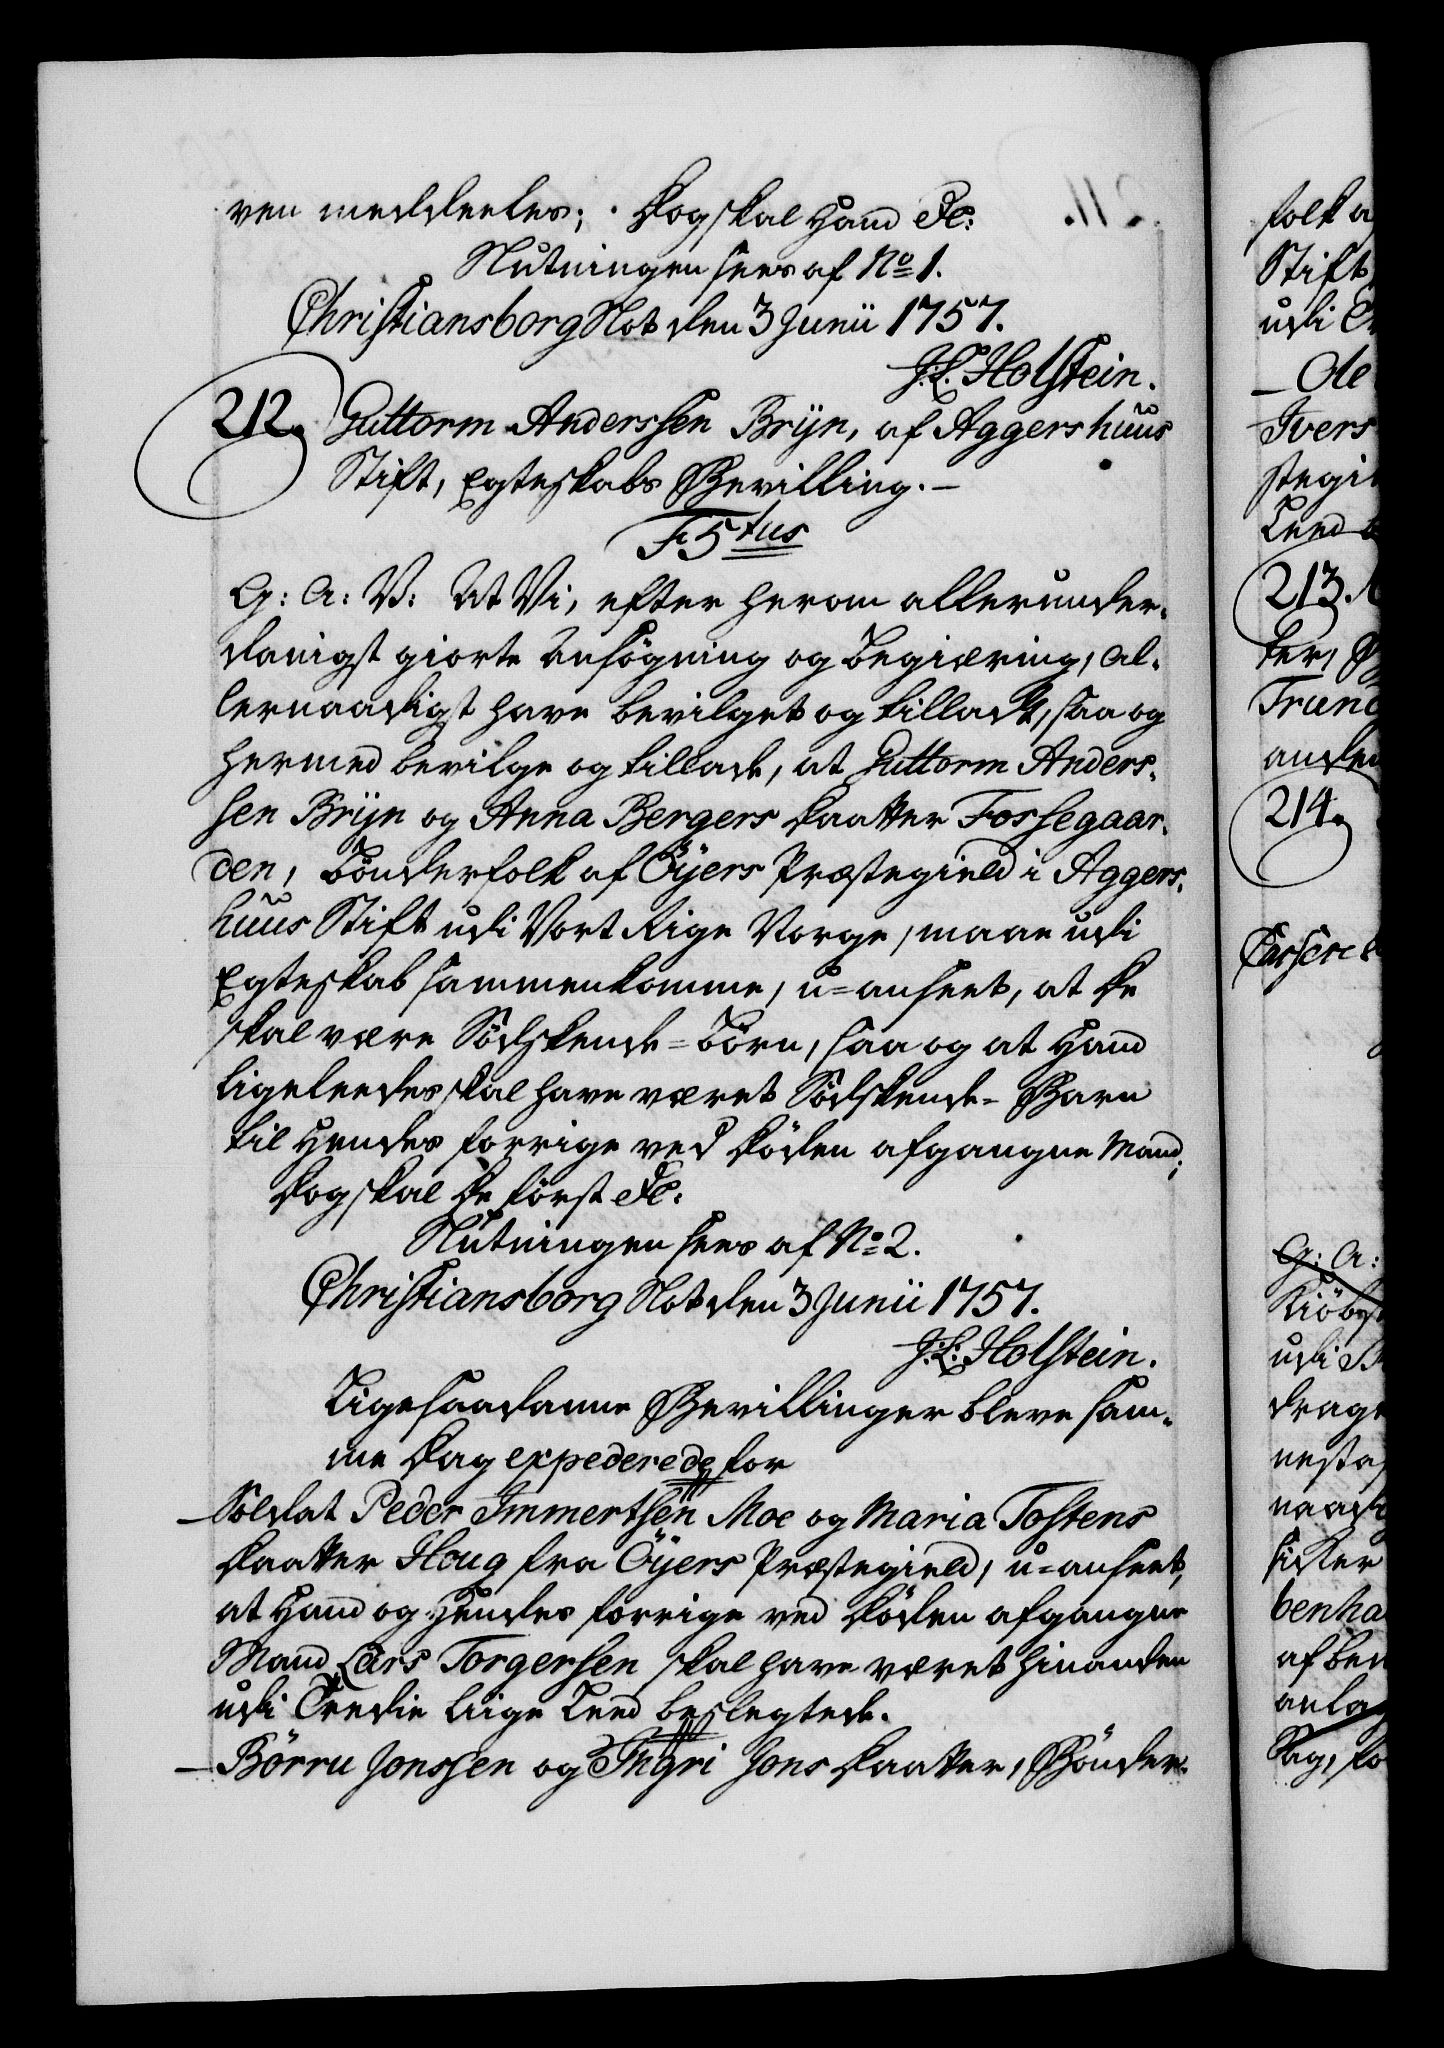 ven meddeeles; Dog skal Hand &c:
Slutningen sees af No 1.
Christiansborg Slot den 3 Junii 1757.
J. L. Holstein.
212. Guttorm Anderssen Brÿn, af Aggershuus
Stift, Egteskabs Bevilling.
F 5tus
G: A: V: At Vi, efter herom allerunder-
danigst giorte Ansögning og Begiæring, al-
lernaadigst have bevilget og tilladt, saa og
hermed bevilge og tillade, at Guttorm Anders-
sen Brÿn og Anna Bergers Daatter Fossegaar-
den, Bönderfolk af Öÿers Præstegield i Aggers-
huus Stift udi Vort Rige Norge, maae udi
Egteskab sammenkomme, u-anseet, at De
skal være Södskende-Börn, saa og at Hand
ligeleedes skal have været Södskende-Barn
til Hendes forrige ved Döden afgangne Mand;
Dog skal De först &c:
Slutningen sees af No 2.
Christiansborg Slot den 3 Junii 1757.
J. L. Holstein.
Ligesaadanne Bevillinger bleve sam-
me Dag expederede for
Soldat Peder Immertsen Moe og Maria Tostens
Daatter Houg fra Öÿers Præstegield, u-anseet,
at Hand og Hendes forrige ved Döden afgangne
Mand Lars Torgersen skal have været hinanden
udi Tredie Liige Leed beslegtede.
Börru Jonssen og Jngri Jons Daatter, Bönder-
folk a
Stift
udi
de
Ivers
stegi
Leed
213.
ter,
Trund
anden
214.
G: A:
Kiöbst
udi
drage
nesta
naad
sider
benha
af ben
anla
Sag, fo